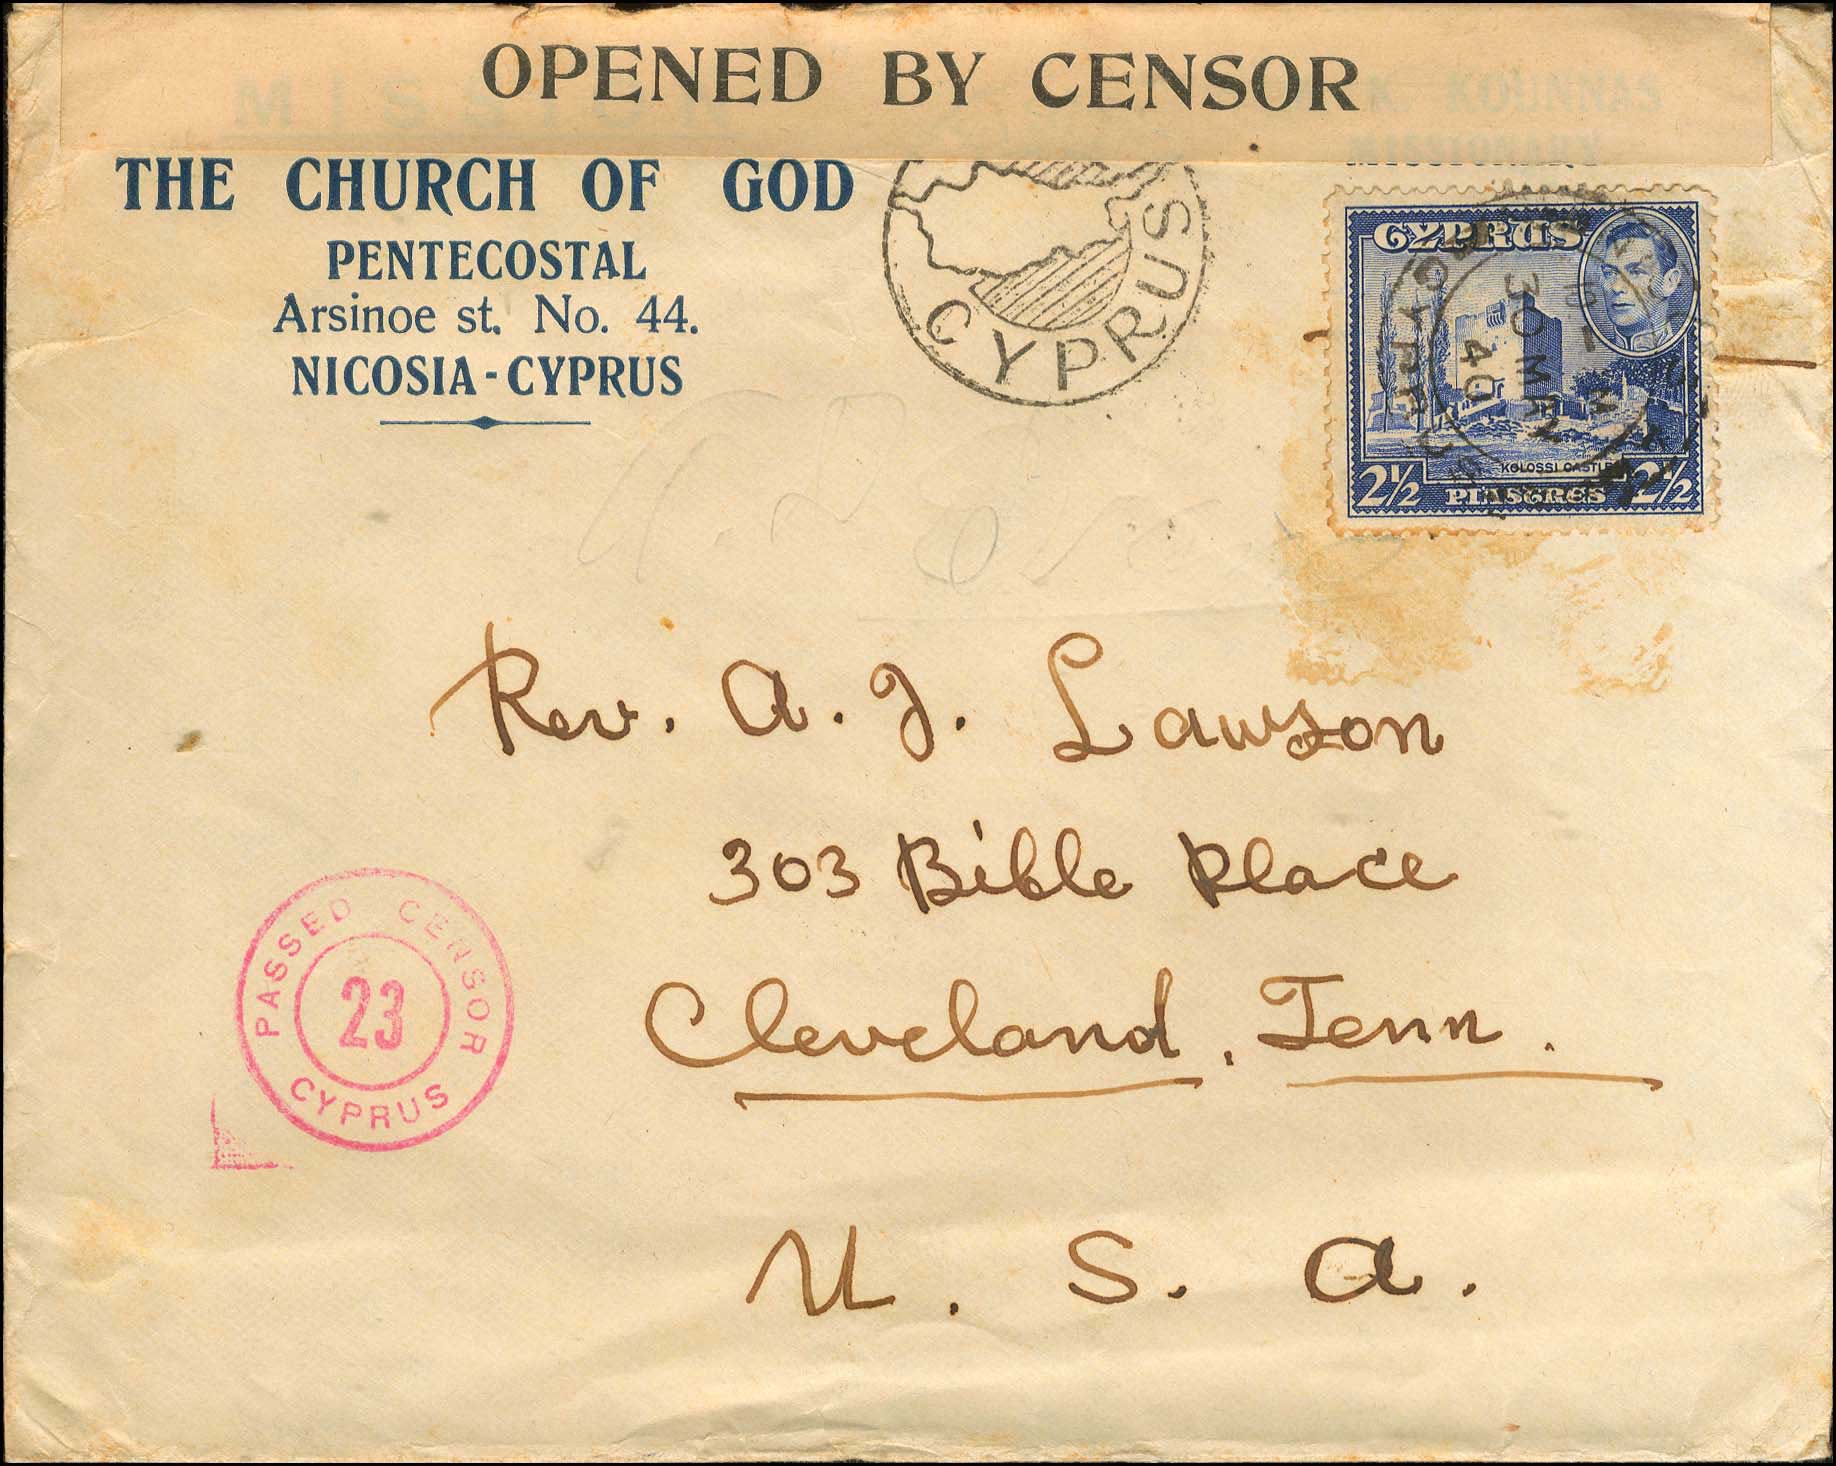 OPENED BY CENSOR
MISSION
K. KOURNAS
MISSIONARY
THE CHURCH OF GOD
PENTECOSTAL
Arsinoe st. No. 44.
NICOSIA - CYPRUS
CYPRUS
CYPRUS
30 MR
40
CYPRUS
KOLOSSI CASTLE
2½ PIASTRES 2½
Rev. A. J. Lawson
303 Bible Place
Cleveland, Tenn.
U. S. A.
PASSED CENSOR
23
CYPRUS